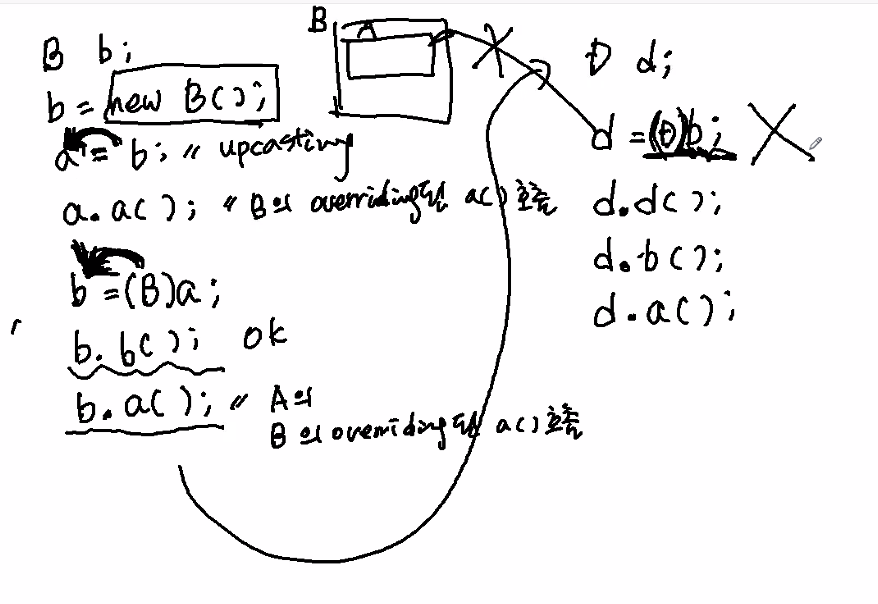 B b;
b = new B();
a = b; // upcasting
a.a(); // B의 overriding된 a() 호출
b = (B)a;
b.b(); ok
b.a(); // A의
B의 overriding된 a() 호출
B
A
D d;
d = (D)b; X
d.d();
d.b();
d.a();